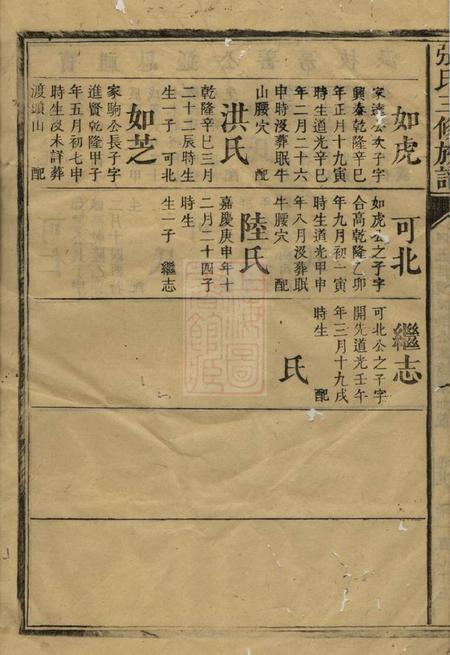 張氏三修族譜
如虎
家達公次子字
興泰乾隆辛巳
年正月十九寅
時生道光辛巳
年二月二十六
申時沒葬眠牛
山腰穴 配
洪氏
乾隆辛巳三月
二十二辰時生
生一子 可北
如芝
家駒公長子字
進賢乾隆甲子
年五月初七申
時生沒未詳葬
渡頭山 配
可北
如虎公之子字
合高乾隆乙卯
年九月初一寅
時生道光甲申
年八月沒葬眠
牛腰穴 配
陸氏
嘉慶庚申年十
二月二十四子
時生
生一子 繼志
繼志
可北公之子字
開先道光壬午
年三月十九戌
時生 配
氏